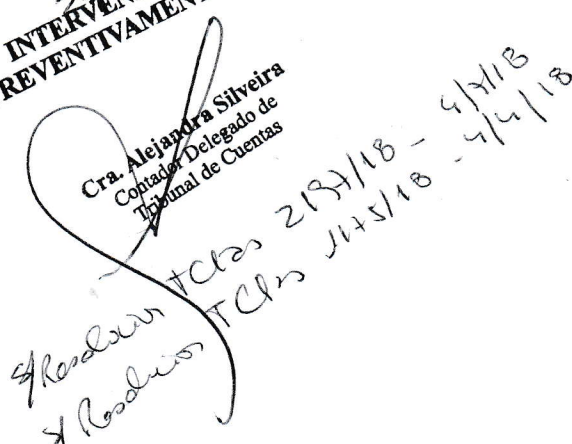 INTERVEN
REVENTIVAMEN
Cra. Alejandra Silveira
Contador Delegado de
Tribunal de Cuentas
s/Resolución TCtas 2187/18 - 4/7/18
s/ Resolución TCtas 1175/18 - 4/4/18